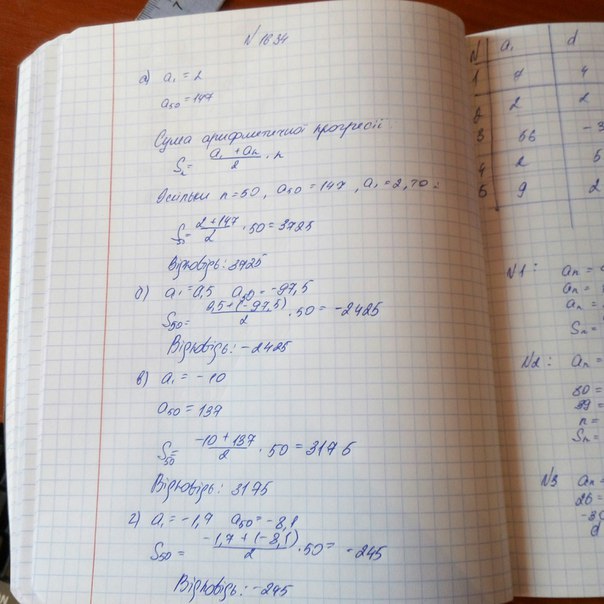 N 1634
а) a₁ = 2
a₅₀ = 147
Сума арифметичної прогресії
Sₙ = (a₁ + aₙ)/2 · n
Оскільки n = 50, a₅₀ = 147, a₁ = 2, то:
S₅₀ = (2 + 147)/2 · 50 = 3725
Відповідь: 3725
б) a₁ = 0,5 a₅₀ = -97,5
S₅₀ = (0,5 + (-97,5))/2 · 50 = -2425
Відповідь: -2425
в) a₁ = -10
a₅₀ = 137
S₅₀ = (-10 + 137)/2 · 50 = 3175
Відповідь: 3175
г) a₁ = -1,7 a₅₀ = -8,1
S₅₀ = (-1,7 + (-8,1))/2 · 50 = -245
Відповідь: -245
N a₁ d
1 7 4
2 2 2
3 56 -3
4 2 5
5 9 2
N1: aₙ =
aₙ =
aₙ =
Sₙ =
N2: aₙ =
80 =
99 =
n =
Sₙ =
N3 aₙ =
26 =
-3
d